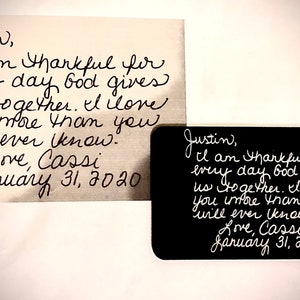 n,
m thankful for
y day God gives
together. I love
more than you
ever know.
ove Cassi
nuary 31, 2020
Justin,
I am thankfu
every day God
us together. I
you more than
will ever know
Love, Cassi
January 31, 2